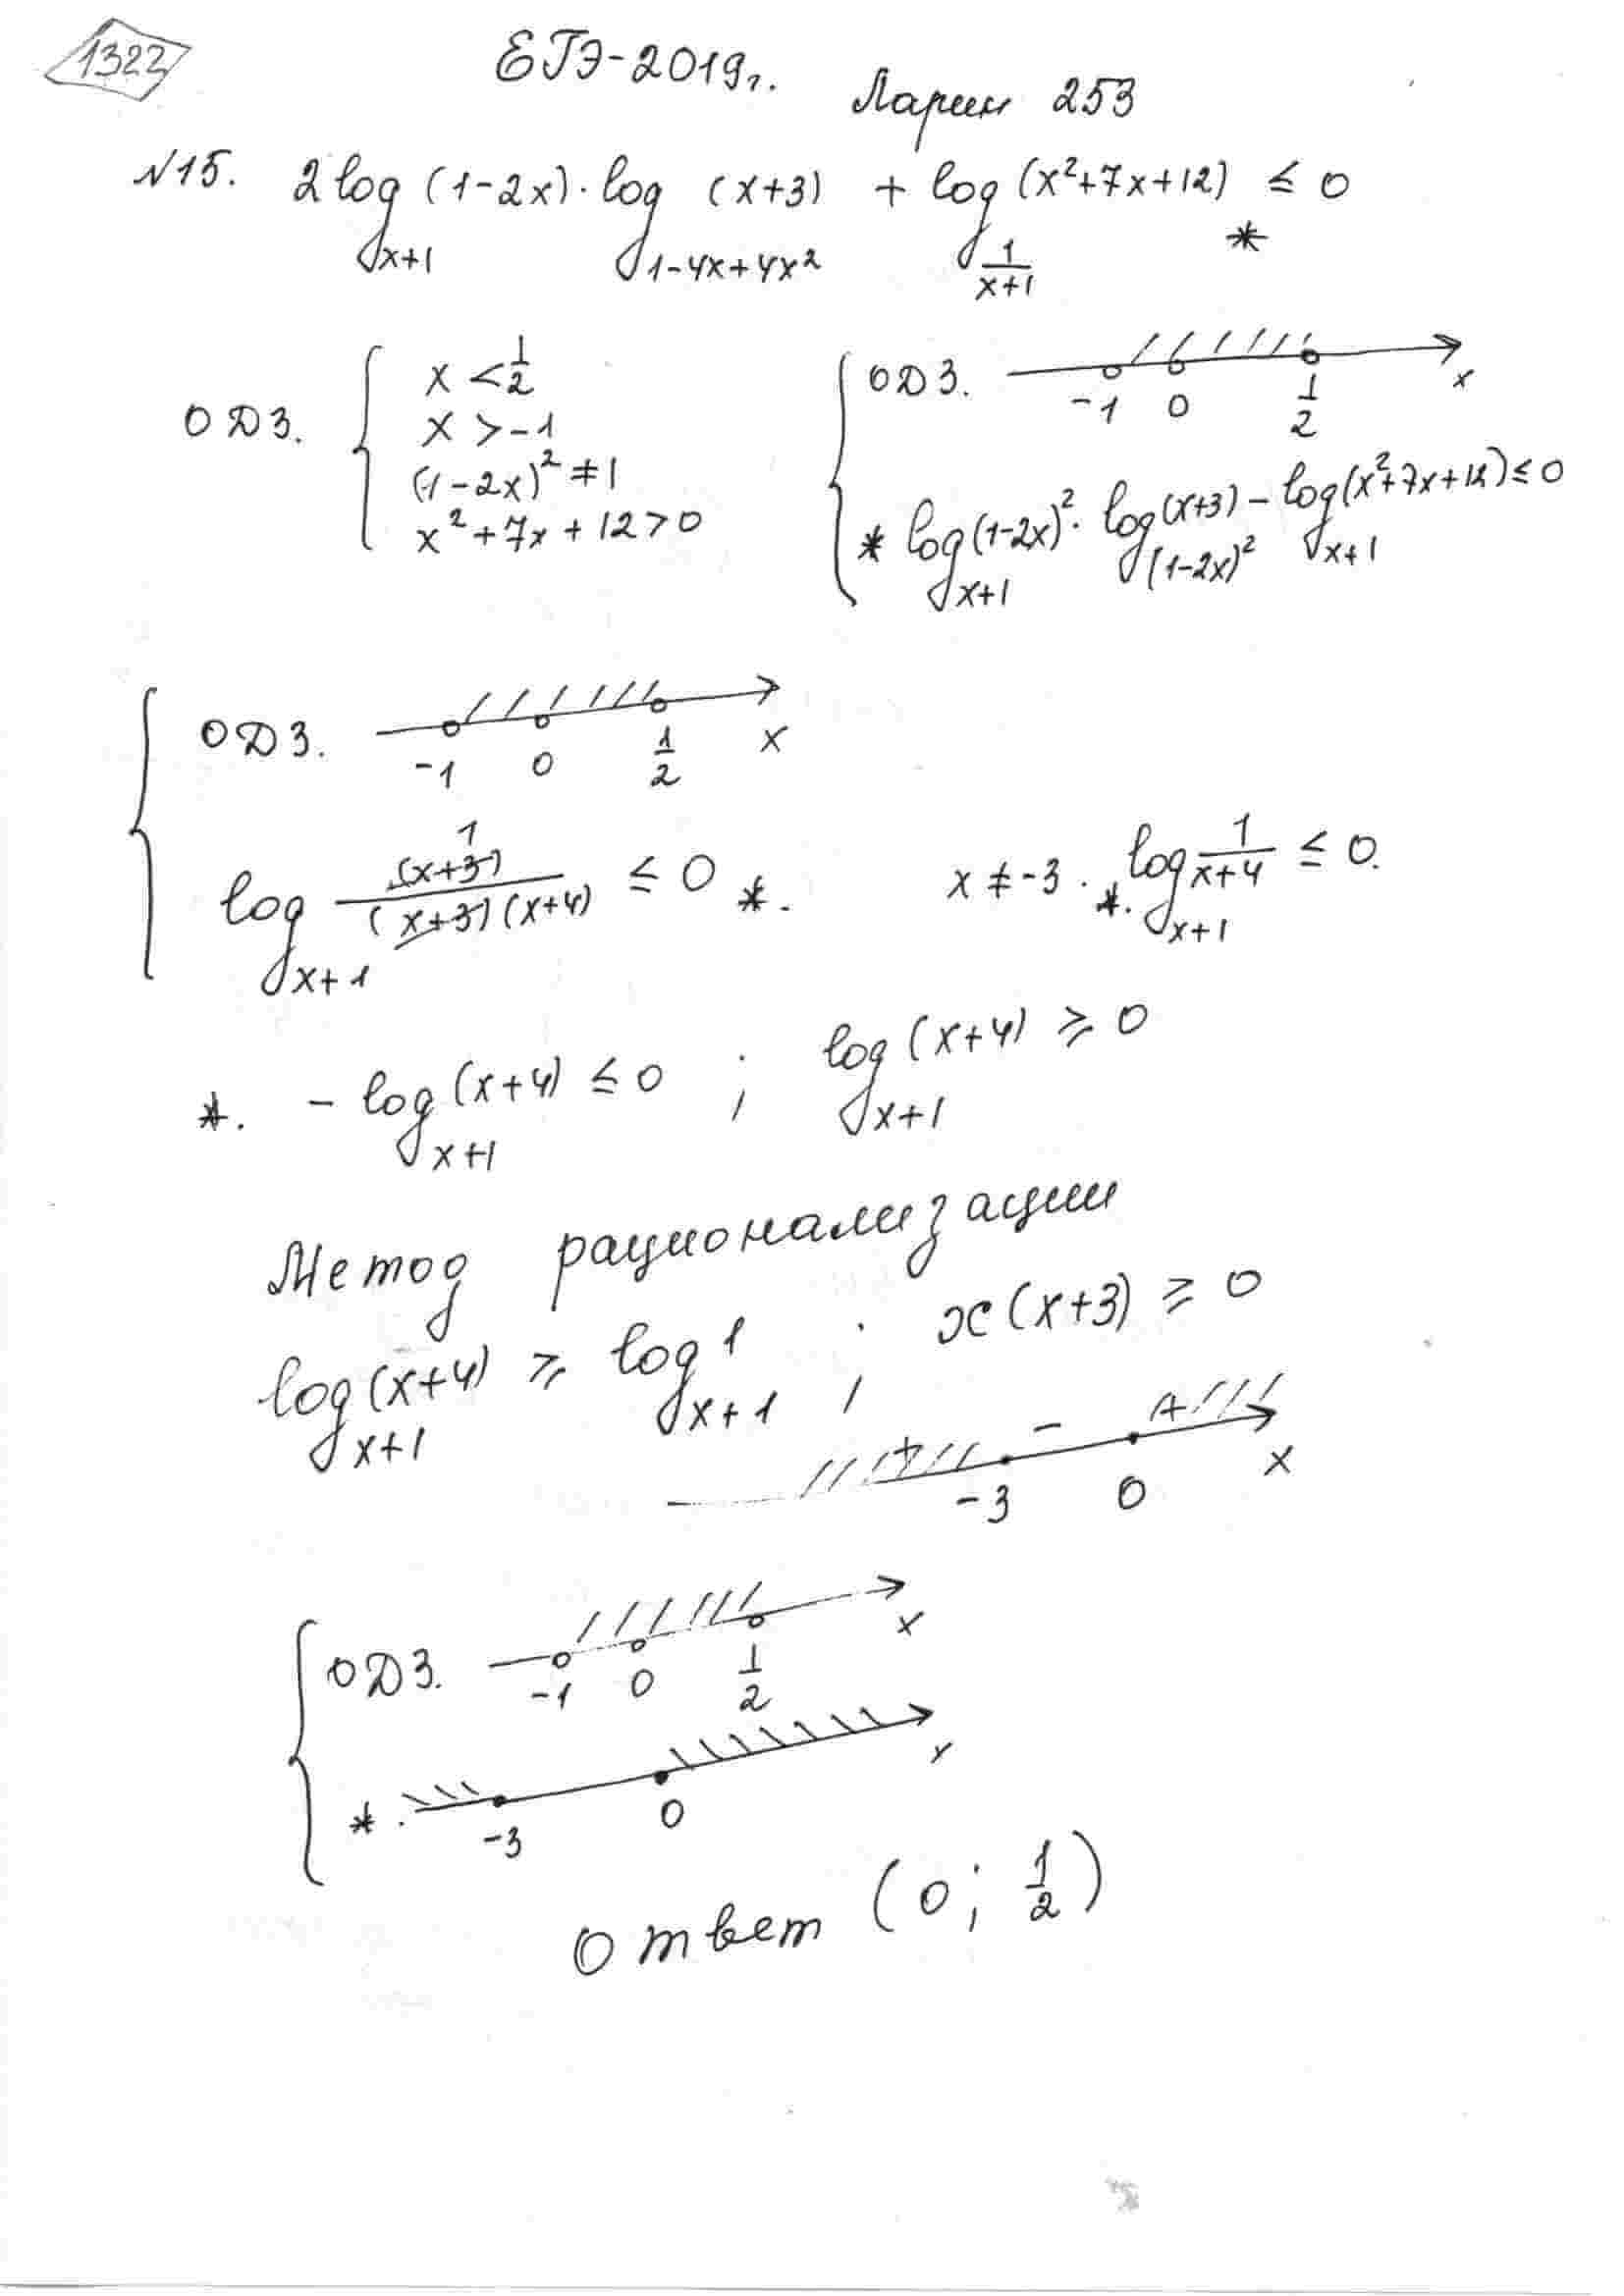 1322
ЕГЭ-2019г.
Ларин 253
№15. 2log_{x+1}(1-2x)·log_{1-4x+4x²}(x+3) + log_{1/(x+1)}(x²+7x+12) ≤ 0 *
ОДЗ. { x < 1/2
x > -1
(1-2x)² ≠ 1
x² + 7x + 12 > 0
{ ОДЗ. -1 0 1/2 x
* log_{x+1}(1-2x)²·log_{(1-2x)²}(x+3) - log_{x+1}(x²+7x+12) ≤ 0
{ ОДЗ. -1 0 1/2 x
log_{x+1} 1 (x+3)/((x+3)(x+4)) ≤ 0 *. x ≠ -3. *. log_{x+1} 1/(x+4) ≤ 0.
*. - log_{x+1}(x+4) ≤ 0 ; log_{x+1}(x+4) ≥ 0
Метод рационализации
log_{x+1}(x+4) ≥ log_{x+1}1 ; x(x+3) ≥ 0
+ - + -3 0 x
{ ОДЗ. -1 0 1/2 x
*. -3 0 x
Ответ (0; 1/2)